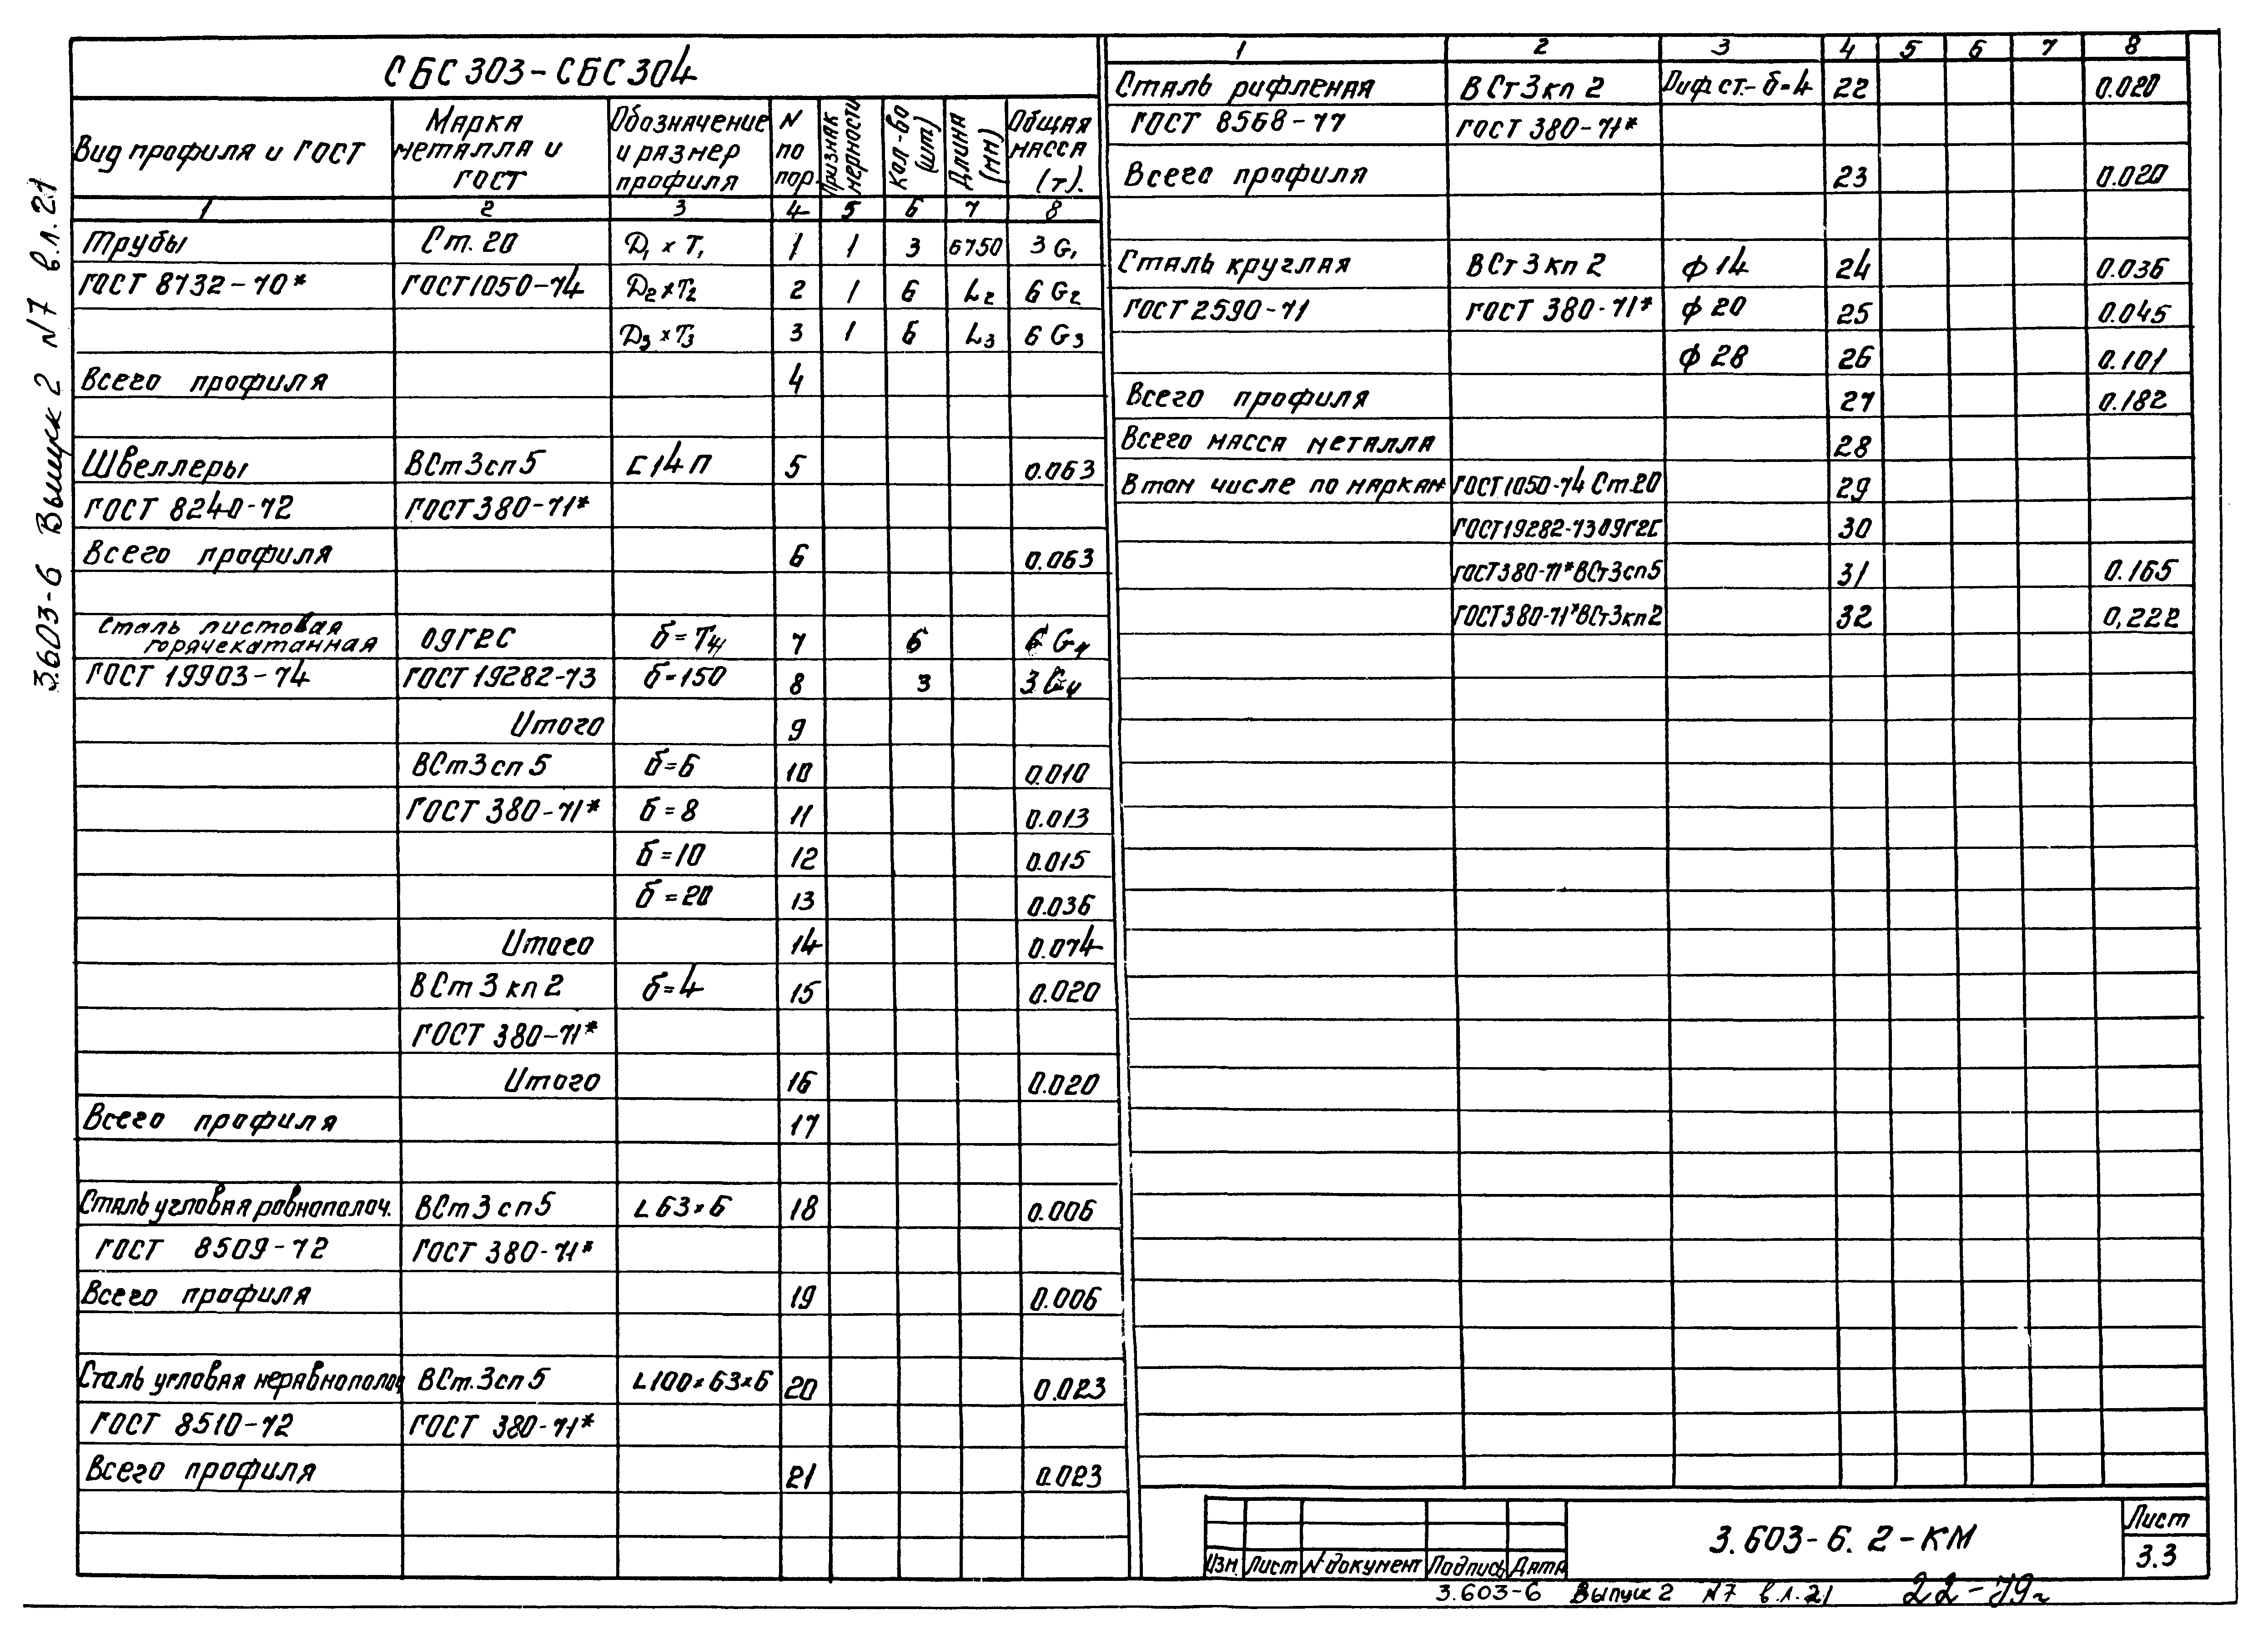 3.603-6 Выпуск 2 N7 в.л.21
СБС 303-СБС 304
Вид профиля и ГОСТ | Марка металла и ГОСТ | Обозначение и размер профиля | N по пор. | Признак мерности | Кол-во (шт) | Длина (мм) | Общая масса (т).
1 2 3 4 5 6 7 8
Трубы Ст. 20 D1 x T1 1 1 3 6750 3 G1
ГОСТ 8732-70* ГОСТ 1050-74 D2 x T2 2 1 6 L2 6 G2
D3 x T3 3 1 6 L3 6 G3
Всего профиля 4
Швеллеры ВСт3сп5 [14П 5 0.063
ГОСТ 8240-72 ГОСТ 380-71*
Всего профиля 6 0.063
Сталь листовая
горячекатанная 09Г2С б=Тщ 7 6 6 G4
ГОСТ 19903-74 ГОСТ 19282-73 б=150 8 3 3 G4
Итого 9
ВСт3сп5 б=6 10 0.010
ГОСТ 380-71* б=8 11 0.013
б=10 12 0.015
б=20 13 0.036
Итого 14 0.074
ВСт3кп2 б=4 15 0.020
ГОСТ 380-71*
Итого 16 0.020
Всего профиля 17
Сталь угловая равнополоч. ВСт3сп5 L63×6 18 0.006
ГОСТ 8509-72 ГОСТ 380-71*
Всего профиля 19 0.006
Сталь угловая неравнополоч ВСт.3сп5 L100×63×6 20 0.023
ГОСТ 8510-72 ГОСТ 380-71*
Всего профиля 21 0.023
1 2 3 4 5 6 7 8
Сталь рифленая ВСт3кп2 Риф ст.-б=4 22 0.020
ГОСТ 8568-77 ГОСТ 380-71*
Всего профиля 23 0.020
Сталь круглая ВСт3кп2 ф14 24 0.036
ГОСТ 2590-71 ГОСТ 380-71* ф20 25 0.045
ф28 26 0.101
Всего профиля 27 0.182
Всего масса металла 28
В том числе по маркам ГОСТ 1050-74 Ст.20 29
ГОСТ 19282-73 09Г2С 30
ГОСТ 380-71* ВСт3сп5 31 0.165
ГОСТ 380-71* ВСт3кп2 32 0,222
Изм. Лист N документ Подпись Дата
3.603-6.2-КМ
Лист
3.3
3.603-6 Выпуск 2 N7 в.л.21 22-79г